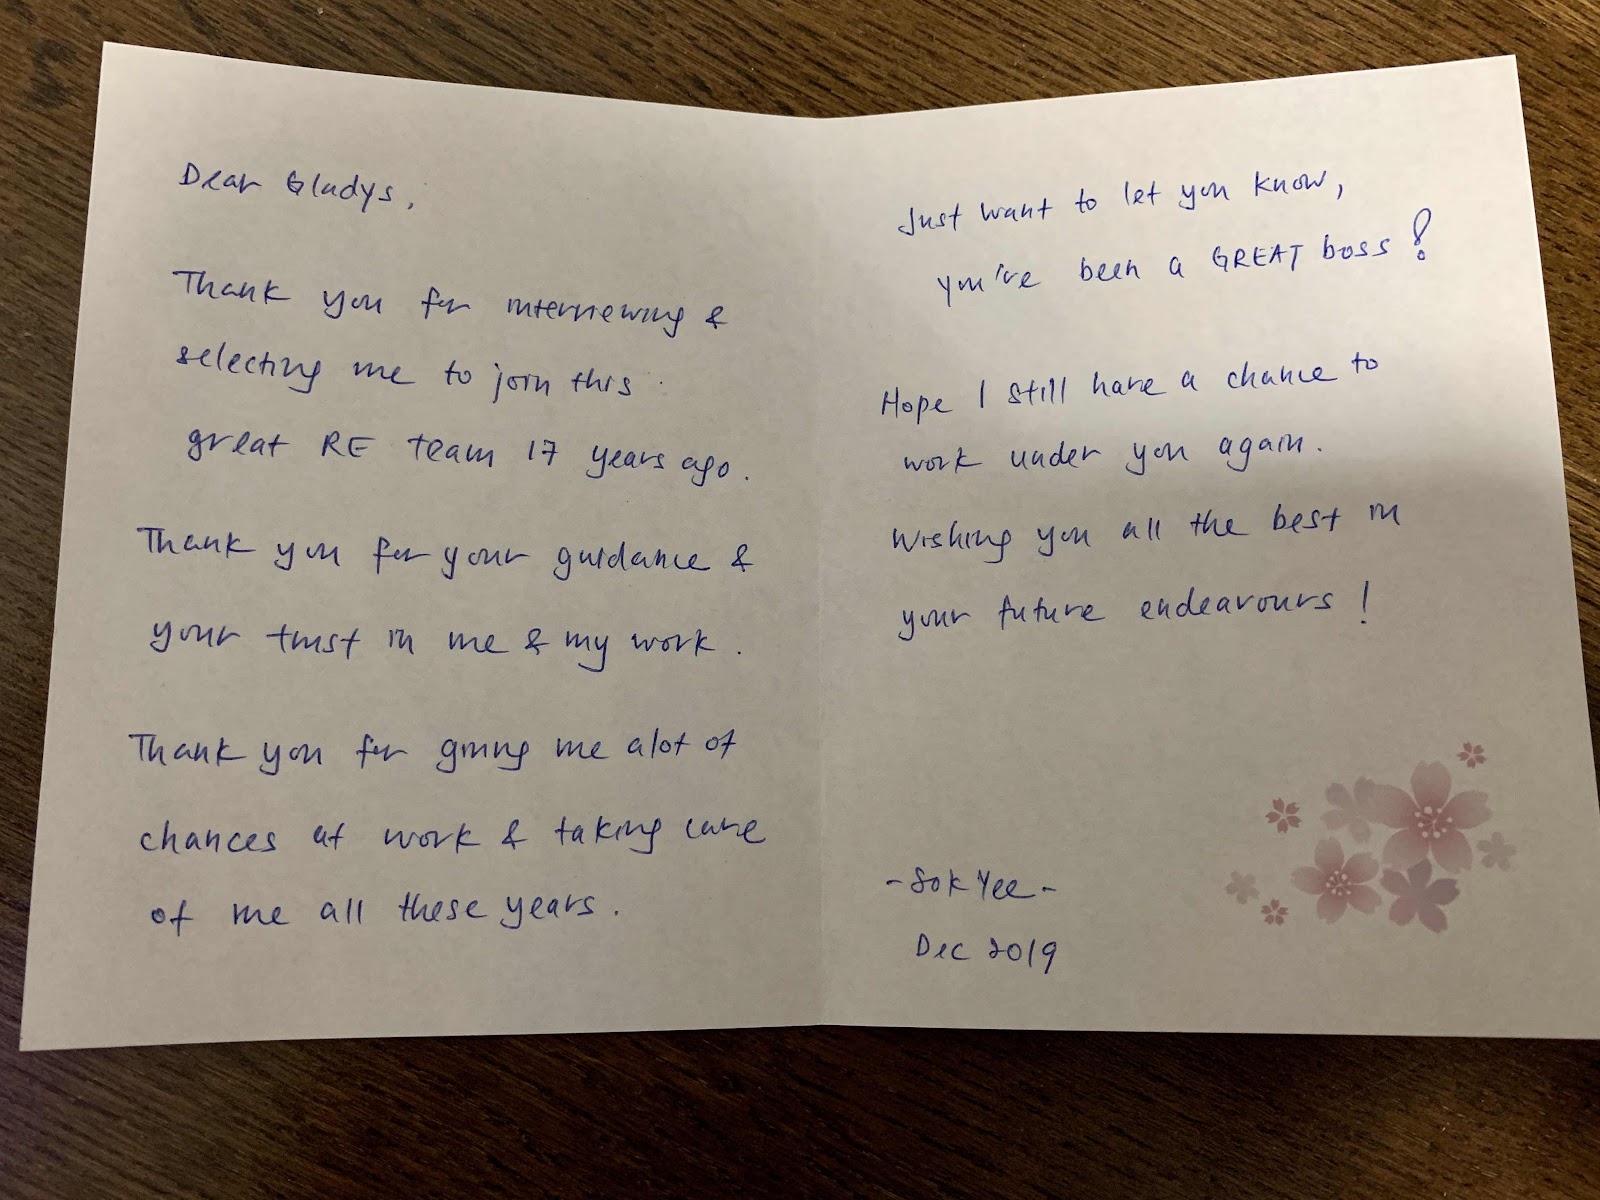 Dear Gladys,
Thank you for interviewing &
selecting me to join this
great RE team 17 years ago.
Thank you for your guidance &
your trust in me & my work.
Thank you for giving me alot of
chances at work & taking care
of me all these years.
Just want to let you know,
you've been a GREAT boss!
Hope I still have a chance to
work under you again.
Wishing you all the best in
your future endeavours!
- Sok Yee -
Dec 2019